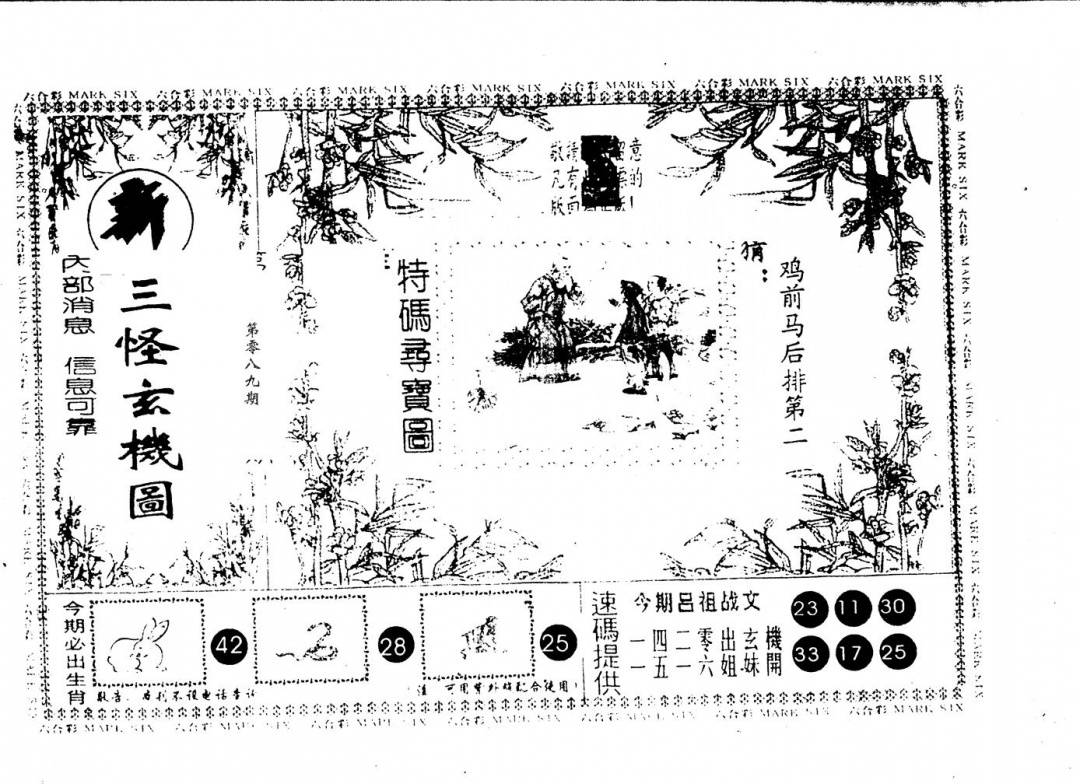 六合彩 MARK SIX 六合彩 MARK SIX 六合彩 MARK SIX 六合彩 MARK SIX 六合彩 MARK SIX 六合彩 MARK SIX 六合彩 MARK SIX
新
三怪玄機圖
内部消息 信息可靠
第零八九期
敬請 意
凡有 的
版面
特碼尋寶圖
猜:
鸡前马后排第二
今期必出生肖
42
28
25
敬告:
速碼提供
今期吕祖战文
一四二零出玄機
一五一六姐妹開
23 11 30
33 17 25
六合彩 MARK SIX 六合彩 MARK SIX 六合彩 MARK SIX 六合彩 MARK SIX 六合彩 MARK SIX 六合彩 MARK SIX 六合彩 MARK SIX